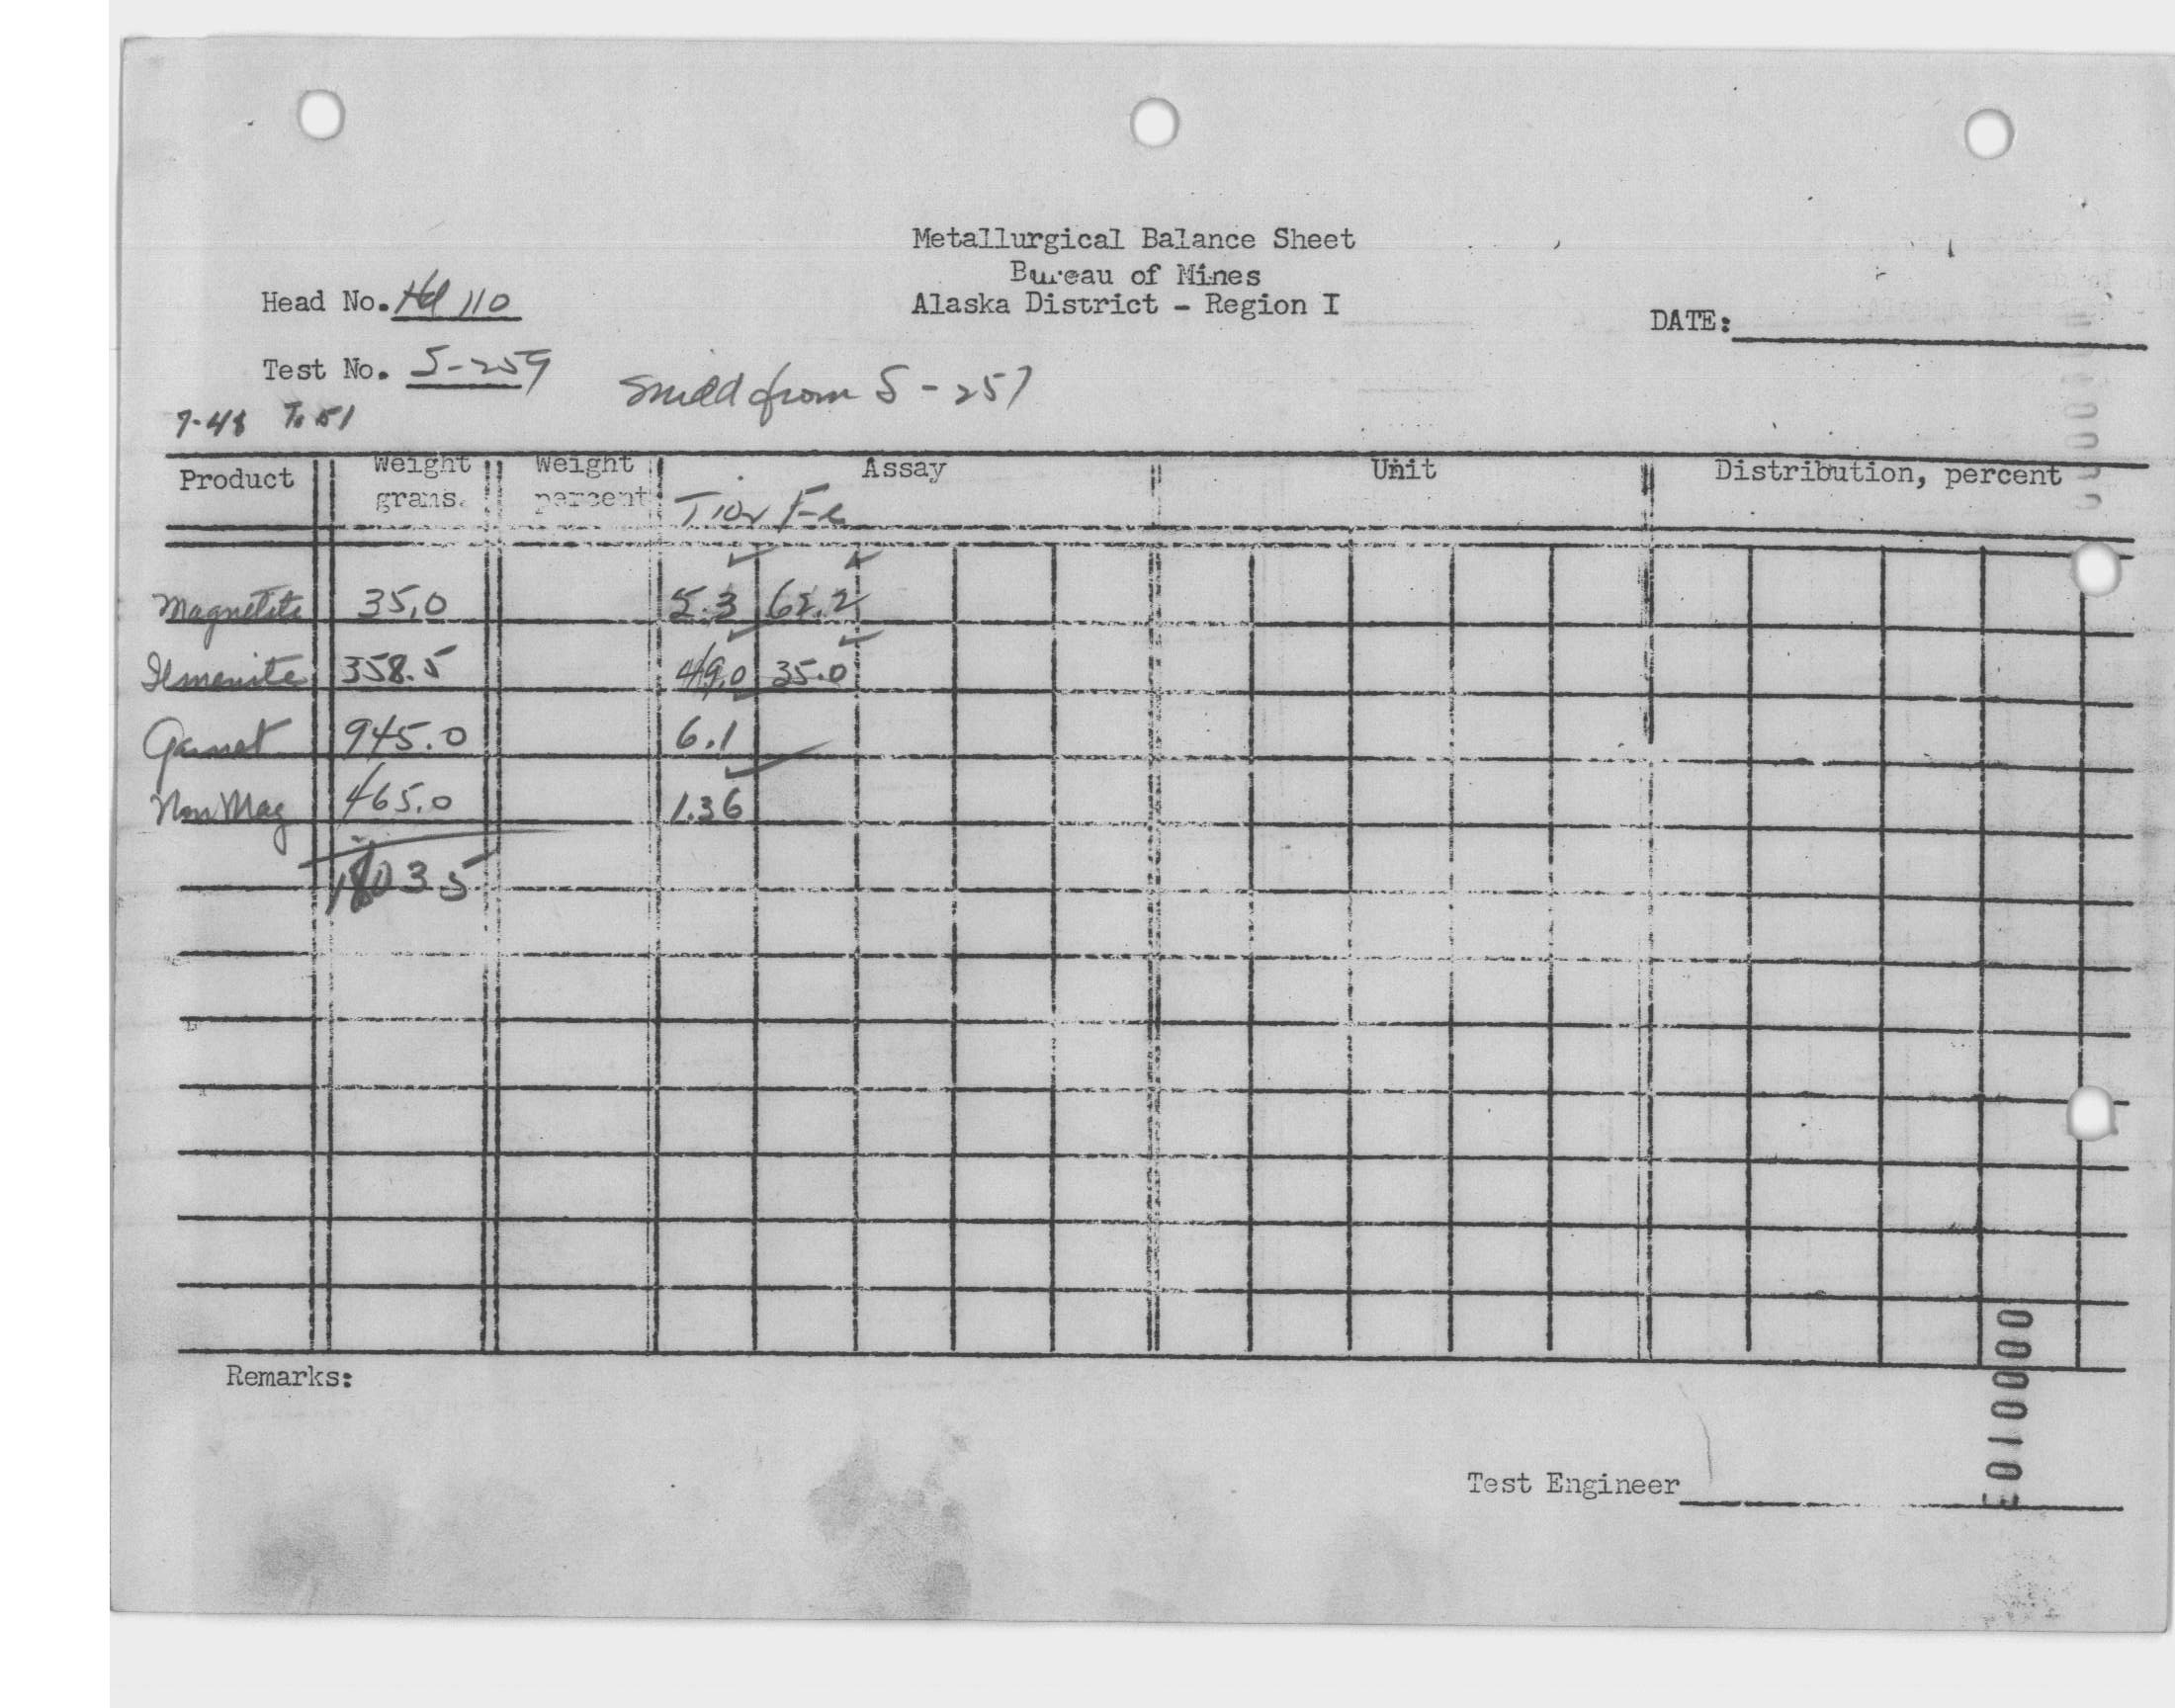 Metallurgical Balance Sheet
Bureau of Mines
Alaska District - Region I
Head No. Hd 110
DATE:
Test No. S-259
from S-257
7-48 To 51
Product Weight grams. Weight percent Assay Unit Distribution, percent
TiO2 Fe
Magnetite 35.0 5.3 62.2
Ilmenite 358.5 49.0 35.0
Garnet 945.0 6.1
Non Mag 465.0 1.36
1803.5
Remarks:
Test Engineer